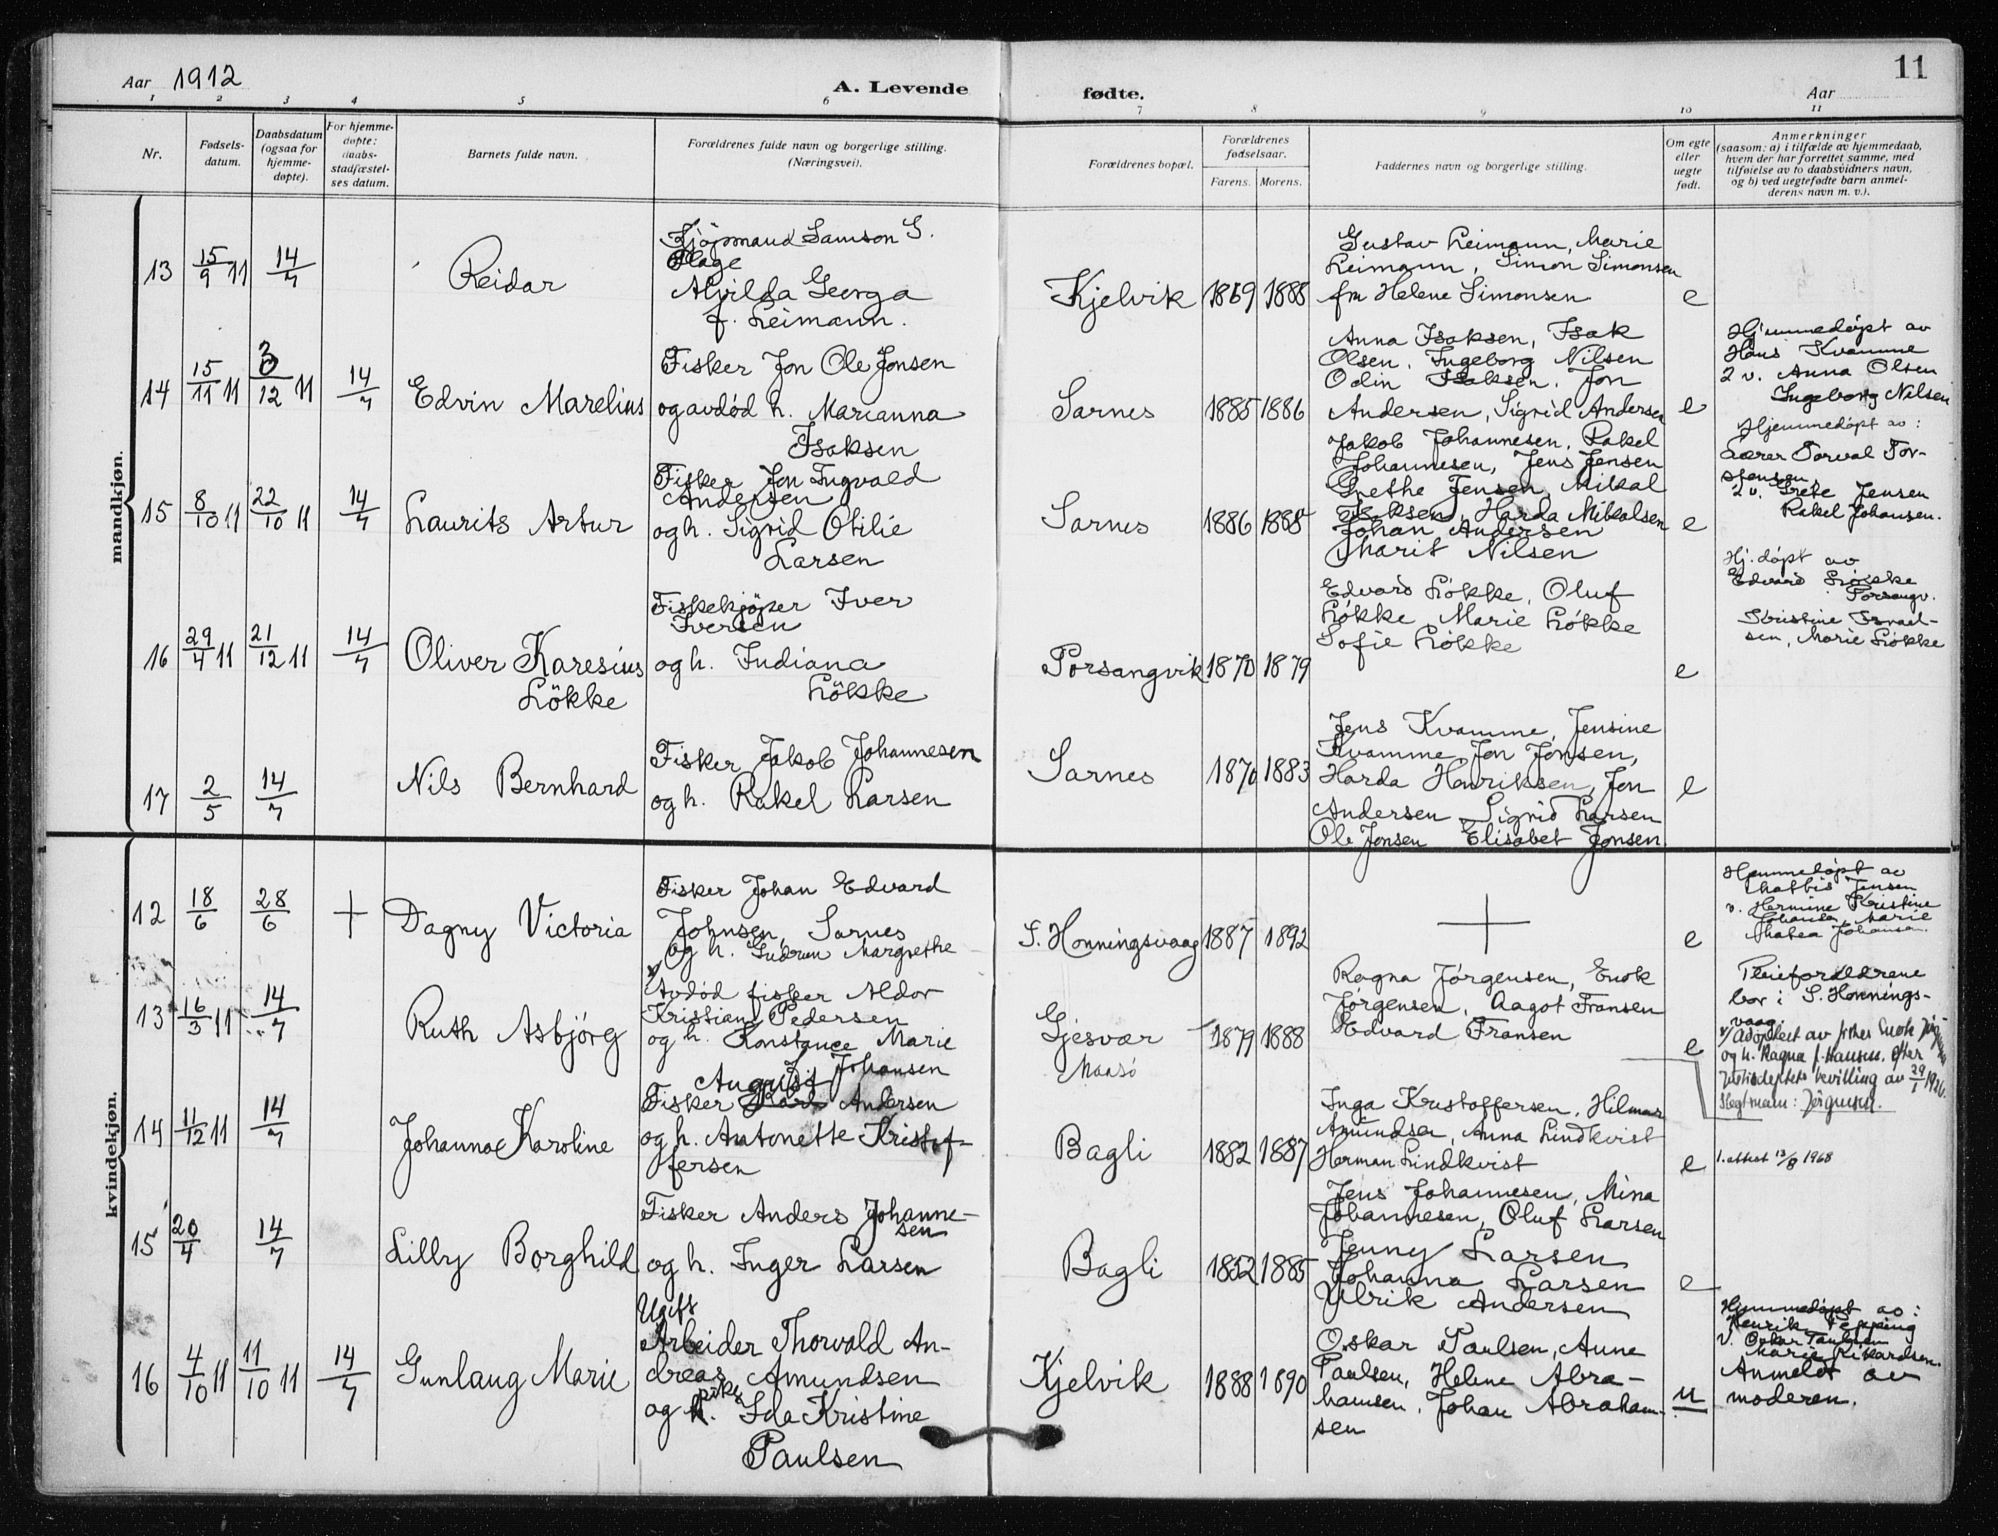 Aar 1912
A. Levende
fødte.
11
Aar
1 2 3 4 5 6 7 8 9 10 11
Nr.
Fødsels-
datum.
Daabsdatum
(ogsaa for
hjemme-
døpte).
For hjemme-
døpte:
daabs-
stadfæstel-
ses datum.
Barnets fulde navn.
Forældrenes fulde navn og borgerlige stilling.
(Næringsvei).
Forældrenes bopæl.
Forældrenes
fødselsaar.
Farens.
Morens.
Faddernes navn og borgerlige stilling.
Om egte
eller
uegte
født.
Anmerkninger
(saasom: a) i tilfælde av hjemmedaab,
hvem der har forrettet samme, med
tilføielse av to daabsvidners navn,
og b) ved uegtefødte barn anmel-
derens navn m. v.).
mandkjøn.
13
15/9 11
14/7
Reidar
Kjøpmand Samson S.
Hage
Alvilda Georga
f. Leimann.
Kjelvik
1869 1888
Gustav Leimann, Marie
Leimann, Simon Simonsen
fru Helene Simonsen
e
14
15/11 11
3/12 11
14/7
Edvin Marelius
Fisker Jon Ole Jonsen
og avdød h. Marianna
Isaksen
Sarnes
1885 1886
Anna Isaksen, Isak
Olsen, Ingeborg Nilsen
Odin Isaksen, Jon
Andersen, Sigrid Andersen
e
Hjemmedøpt av
Hans Kvamme
2 v. Anna Olsen
Ingeborg Nilsen
15
8/10 11
22/10 11
14/7
Laurits Artur
Fisker Jon Ingvald
Andersen
og h. Sigrid Otilie
Larsen
Sarnes
1886 1888
Jakob Johannesen, Rakel
Johannesen, Jens Jensen
Grethe Jensen, Mikal
Isaksen, Harda Mikalsen
Johan Andersen
Marit Nilsen
e
Hjemmedøpt av:
Lærer Torval Tor-
stensen
2 v. Grete Jensen
Rakel Johansen.
16
29/4 11
21/12 11
14/7
Oliver Karesius
Lökke
Fiskekjøper Iver
Iversen
og h. Indiana
Lökke
Porsangvik
1870 1879
Edvard Løkke, Oluf
Løkke, Marie Løkke
Sofie Løkke
e
Hj. døpt av
Edvard Løkke
Porsangv.
Kristine Israel-
sen, Marie Løkke
17
2/5
14/7
Nils Bernhard
Fisker Jakob Johannesen
og h. Rakel Larsen
Sarnes
1870 1883
Jens Kvamme, Jensine
Kvamme, Jon Jonsen,
Harda Henriksen, Jon
Andersen, Sigrid Larsen
Ole Jonsen Elisabet Jonsen.
e
kvindekjøn.
12
18/6
28/6
+
Dagny Victoria
Fisker Johan Edvard
Johnsen, Sarnes
og h. Gudrun Margrethe
S. Honningsvaag
1887 1892
+
e
Hjemmedøpt av
Mathis Jensen
v. Hermine Kristine
Johansen, Marie
Mathea Johansen.
13
16/3 11
14/7
Ruth Asbjörg
Avdød fisker Aldor
Kristian Pedersen
og h. Konstance Marie
f. Johansen
Gjesvær
Maasö
1879 1888
Ragna Jørgensen, Enok
Jørgensen, Aagot Fransen
Edvard Fransen
e
Pleieforældrene
bor i S. Honnings-
vaag.
x/ Adoptert av fisker Enok Jørgensen
og h. Ragna f. Hansen, efter
Justisdeptets bevilling av 29/1 1926.
Slegtsnavn: Jørgensen.
14
11/12 11
14/7
Johanna Karoline
August
Fisker Andersen
og h. Antonette Kristof-
fersen
Bagli
1882 1887
Inga Kristoffersen, Hilmar
Amundsen, Anna Lindkvist
Herman Lindkvist
e
1. attest 13/8 1968
15
20/4
14/7
Lilly Borghild
Fisker Anders Johanne-
sen
og h. Inger Larsen
Bagli
1852 1885
Jens Johannesen, Mina
Johannesen, Oluf Larsen
Jenny Larsen
Johanna Larsen
Ulrik Andersen
e
16
4/10 11
11/10 11
14/7
Gunlaug Marie
Ugift
Arbeider Thorvald An-
dreas Amundsen
og pike Ida Kristine
Paulsen
Kjelvik
1888 1890
Oskar Paulsen, Anne
Paulsen, Helene Abra-
hamsen, Johan Abraham-
sen
u
Hjemmedøpt av:
Henrik Pepping
v. Oskar Paulsen
Marie Rikardsen.
Anmeldt av
moderen.